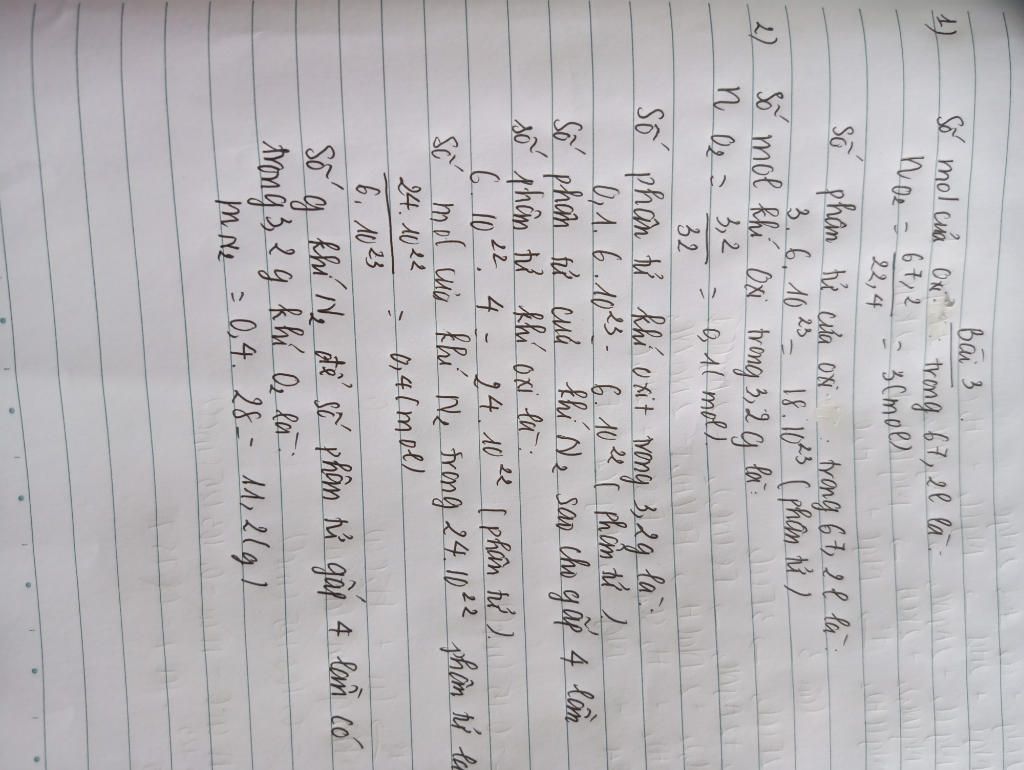 Bài 3
1) Số mol của oxi trong 67,2l là:
nO₂ = 67,2 / 22,4 = 3(mol)
Số phân tử của oxi trong 67,2l là:
3.6.10²³ = 18.10²³ (phân tử)
2) Số mol khí oxi trong 3,2g là:
nO₂ = 3,2 / 32 = 0,1(mol)
Số phân tử khí oxi trong 3,2g là:
0,1.6.10²³ = 6.10²² (phân tử)
Số phân tử của khí N₂ sao cho gấp 4 lần
số phân tử khí oxi là:
6.10²².4 = 24.10²² (phân tử).
Số mol của khí N₂ trong 24.10²² phân tử là
24.10²² / 6.10²³ = 0,4(mol)
Số g khí N₂ để số phân tử gấp 4 lần có
trong 3,2g khí O₂ là:
mN₂ = 0,4.28 = 11,2(g)